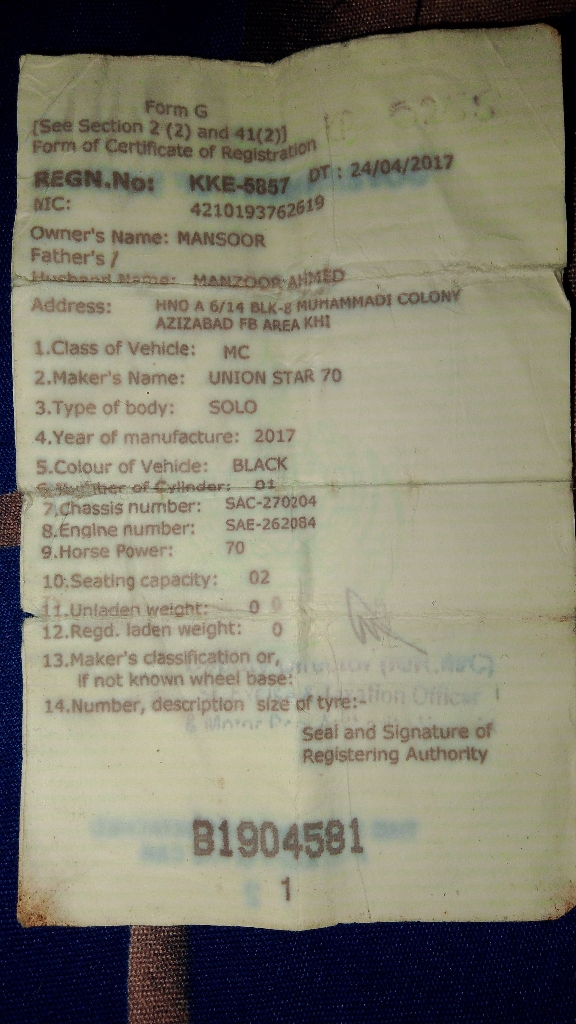 Form G
[See Section 2 (2) and 41(2)]
Form of Certificate of Registration
REGN.No: KKE-5857 DT : 24/04/2017
NIC: 4210193762619
Owner's Name: MANSOOR
Father's /
Husband Name: MANZOOR AHMED
Address: HNO A 6/14 BLK-8 MUHAMMADI COLONY
AZIZABAD FB AREA KHI
1.Class of Vehicle: MC
2.Maker's Name: UNION STAR 70
3.Type of body: SOLO
4.Year of manufacture: 2017
5.Colour of Vehicle: BLACK
6.Number of Cylinder: 01
7.Chassis number: SAC-270204
8.Engine number: SAE-262084
9.Horse Power: 70
10.Seating capacity: 02
11.Unladen weight: 0
12.Regd. laden weight: 0
13.Maker's classification or,
if not known wheel base:
14.Number, description size of tyre:-
Taxation Officer
Seal and Signature of
Registering Authority
B1904581
1